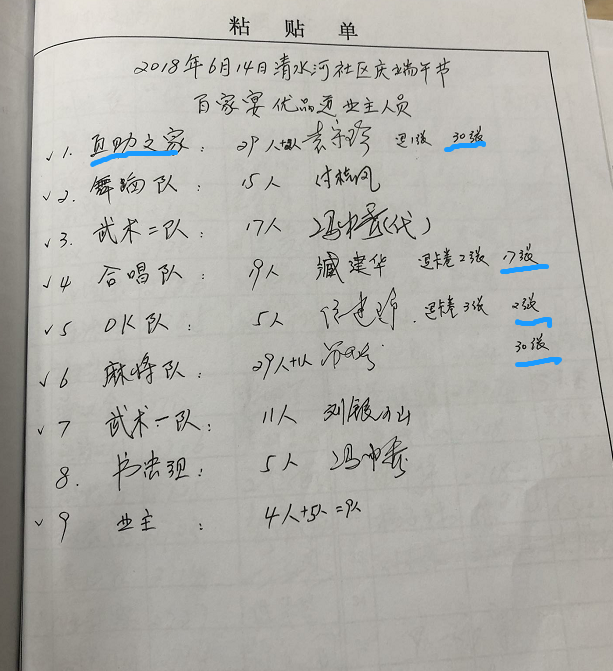 粘贴单
2018年6月14日清水河社区庆端午节
百家宴优品道业主人员
✓1. 互助之家: 29人+2人 袁宗珍 退1张 30张
✓2. 舞蹈队: 15人 付桂凤
✓3. 武术二队: 17人 冯(代)
✓4 合唱队: 19人 臧建华 退卡卷2张 17张
✓5 OK队: 5人 退卡卷3张 2张
✓6 麻将队: 29人+1人 30张
✓7 武术一队: 11人 刘银山
8. 书法组: 5人 冯
✓9 业主: 4人+5人=9人